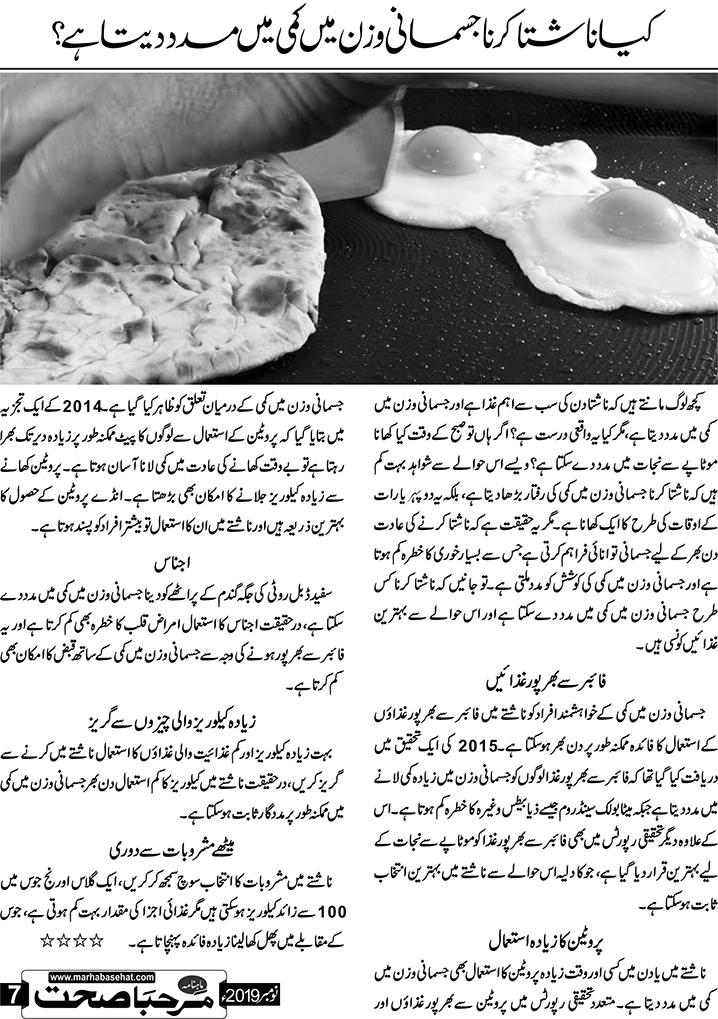 کیا ناشتا کرنا جسمانی وزن میں کمی میں مدد دیتا ہے؟
کچھ لوگ مانتے ہیں کہ ناشتا دن کی سب سے اہم غذا ہے اور جسمانی وزن میں
کمی میں مدد دیتا ہے، مگر کیا یہ واقعی درست ہے؟ اگر ہاں تو صبح کے وقت کیا کھانا
موٹاپے سے نجات میں مدد دے سکتا ہے؟ ویسے اس حوالے سے شواہد بہت کم
ہیں کہ ناشتا کرنا جسمانی وزن میں کمی کی رفتار بڑھا دیتا ہے، بلکہ یہ دوپہر یا رات
کے اوقات کی طرح کا ایک کھانا ہے۔ مگر یہ حقیقت ہے کہ ناشتا کرنے کی عادت
دن بھر کے لیے جسمانی توانائی فراہم کرتی ہے جس سے بسیار خوری کا خطرہ کم ہوتا
ہے اور جسمانی وزن میں کمی کی کوشش کو مدد ملتی ہے۔ تو جانیں کہ ناشتا کرنا کس
طرح جسمانی وزن میں کمی میں مدد دے سکتا ہے اور اس حوالے سے بہترین
غذائیں کونسی ہیں۔
فائبر سے بھرپور غذائیں
جسمانی وزن میں کمی کے خواہشمند افراد کو ناشتے میں فائبر سے بھرپور غذاؤں
کے استعمال کا فائدہ ممکنہ طور پر دن بھر ہوسکتا ہے۔ 2015 کی ایک تحقیق میں
دریافت کیا گیا تھا کہ فائبر سے بھرپور غذا لوگوں کو جسمانی وزن میں زیادہ کمی لانے
میں مدد دیتا ہے جبکہ میٹابولک سینڈروم جیسے ذیابیطس وغیرہ کا خطرہ کم ہوتا ہے۔ اس
کے علاوہ دیگر تحقیقی رپورٹس میں بھی فائبر سے بھرپور غذا کو موٹاپے سے نجات کے
لیے بہترین قرار دیا گیا ہے، جو کا دلیہ اس حوالے سے ناشتے میں بہترین انتخاب
ثابت ہوسکتا ہے۔
پروٹین کا زیادہ استعمال
ناشتے میں یا دن میں کسی اور وقت زیادہ پروٹین کا استعمال بھی جسمانی وزن میں
کمی میں مدد دیتا ہے۔ متعدد تحقیقی رپورٹس میں پروٹین سے بھرپور غذاؤں اور
جسمانی وزن میں کمی کے درمیان تعلق کو ظاہر کیا گیا ہے۔ 2014 کے ایک تجزیہ
میں بتایا گیا کہ پروٹین کے استعمال سے لوگوں کا پیٹ ممکنہ طور پر زیادہ دیر تک بھرا
رہتا ہے تو بے وقت کھانے کی عادت میں کمی لانا آسان ہوتا ہے۔ پروٹین کھانے
سے زیادہ کیلوریز جلانے کا امکان بھی بڑھتا ہے۔ انڈے پروٹین کے حصول کا
بہترین ذریعہ ہیں اور ناشتے میں ان کا استعمال تو بیشتر افراد کو پسند ہوتا ہے۔
اجناس
سفید ڈبل روٹی کی جگہ گندم کے پراٹھے کو دینا جسمانی وزن میں کمی میں مدد دے
سکتا ہے، درحقیقت اجناس کا استعمال امراض قلب کا خطرہ بھی کم کرتا ہے اور یہ
فائبر سے بھرپور ہونے کی وجہ سے جسمانی وزن میں کمی کے ساتھ قبض کا امکان بھی
کم کرتا ہے۔
زیادہ کیلوریز والی چیزوں سے گریز
بہت زیادہ کیلوریز اور کم غذائیت والی غذاؤں کا استعمال ناشتے میں کرنے سے
گریز کریں، درحقیقت ناشتے میں کیلوریز کا کم استعمال دن بھر جسمانی وزن میں کمی
میں ممکنہ طور پر مددگار ثابت ہوسکتا ہے۔
میٹھے مشروبات سے دوری
ناشتے میں مشروبات کا انتخاب سوچ سمجھ کر کریں، ایک گلاس اورنج جوس میں
100 سے زائد کیلوریز ہوسکتی ہیں مگر غذائی اجزا کی مقدار بہت کم ہوتی ہے، جوس
کے مقابلے میں پھل کھا لینا زیادہ فائدہ پہنچاتا ہے۔ ☆☆☆☆
www.marhabasehat.com
نومبر 2019ء ماہنامہ مرحبا صحت 7